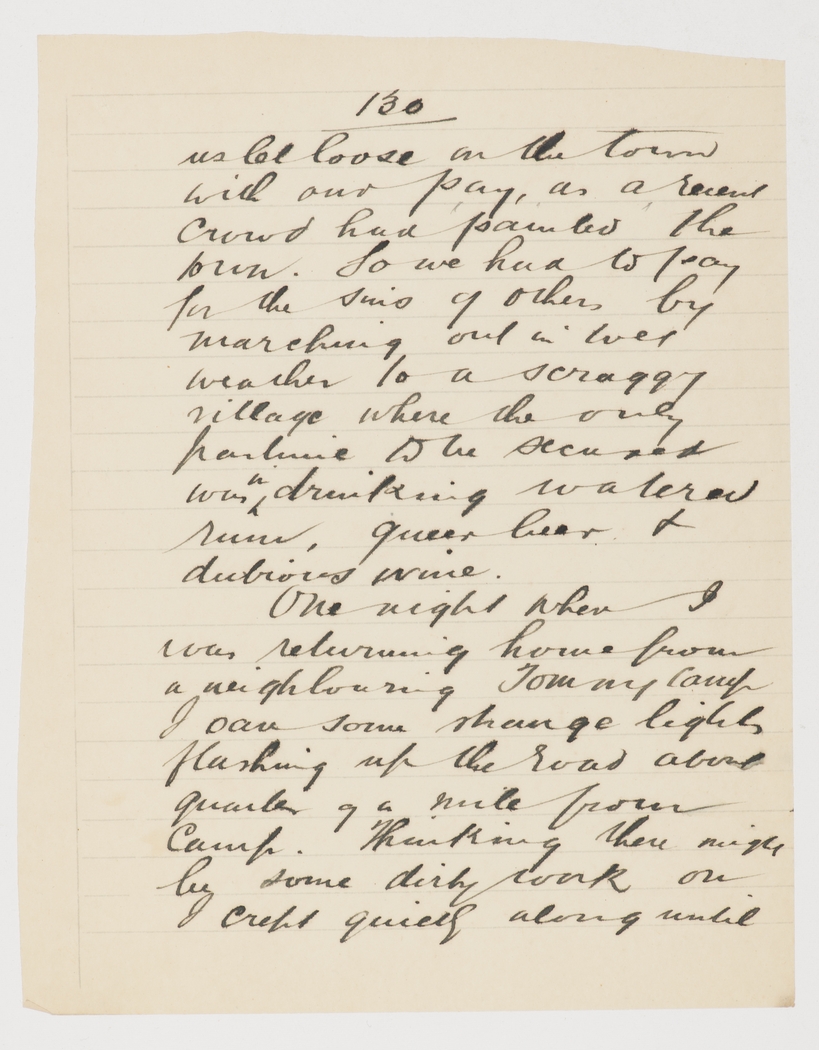 130
us let loose on the town
with our pay, as a recent
crowd had painted the
town. So we had to pay
for the sins of others by
marching out in wet
weather to a scraggy
village where the only
pastime to be secured
was in drinking watered
rum, queer beer &
dubious wine.
One night when I
was returning home from
a neighbouring Tommy Camp
I saw some strange lights
flashing up the road about
quarter of a mile from
Camp. Thinking there might
be some dirty work on
I crept quietly along until